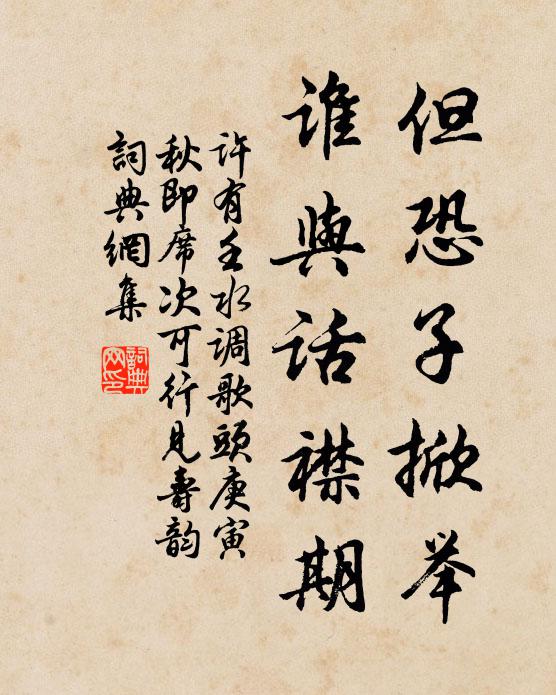 但恐子掀举
谁與话襟期
许有壬水调歌頭庚寅
秋即席次可行見壽韵
詞典網集
詞典網印